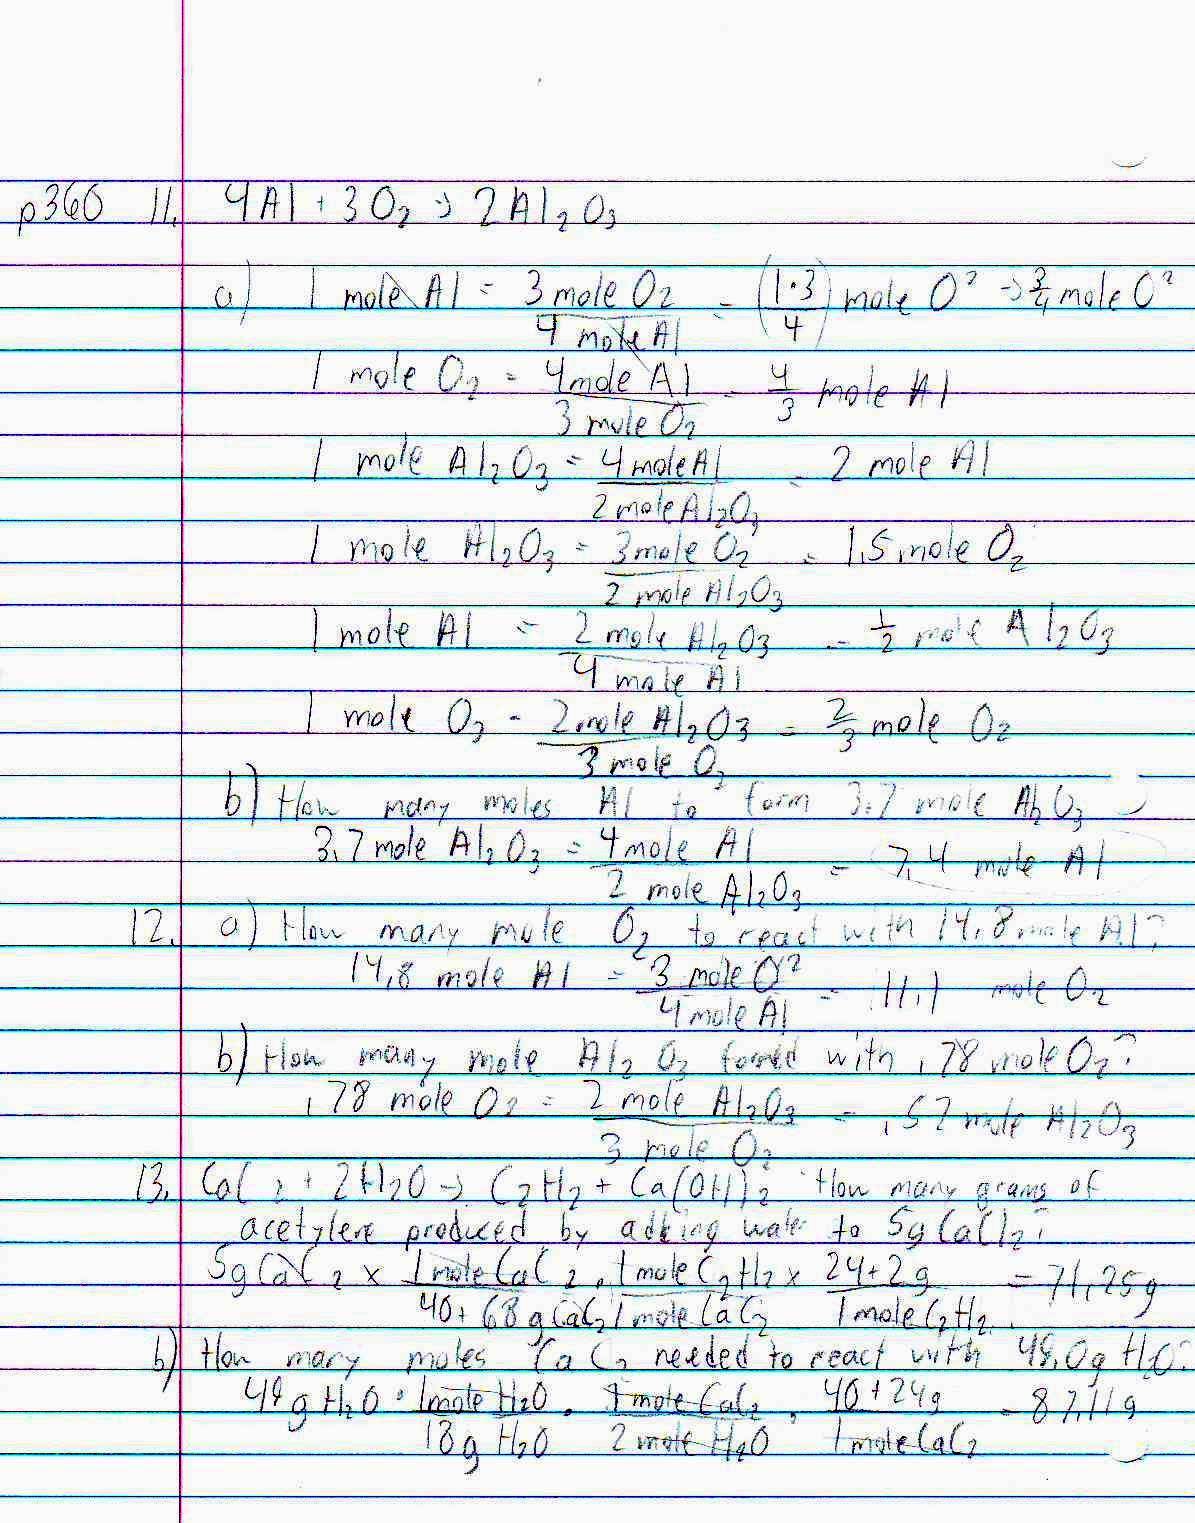 p360 11. 4Al + 3O₂ → 2Al₂O₃
a) 1 mole Al = 3 mole O₂ / 4 mole Al = (1·3 / 4) mole O² → 3/4 mole O²
1 mole O₂ = 4 mole Al / 3 mole O₂ = 4/3 mole Al
1 mole Al₂O₃ = 4 mole Al / 2 mole Al₂O₃ = 2 mole Al
1 mole Al₂O₃ = 3 mole O₂ / 2 mole Al₂O₃ = 1.5 mole O₂
1 mole Al = 2 mole Al₂O₃ / 4 mole Al = 1/2 mole Al₂O₃
1 mole O₂ = 2 mole Al₂O₃ / 3 mole O₂ = 2/3 mole O₂
b) How many moles Al to form 3.7 mole Al₂O₃
3.7 mole Al₂O₃ = 4 mole Al / 2 mole Al₂O₃ = 7.4 mole Al
12. a) How many mole O₂ to react with 14.8 mole Al?
14.8 mole Al = 3 mole O² / 4 mole Al = 11.1 mole O₂
b) How many mole Al₂O₃ formed with .78 mole O₂?
.78 mole O₂ = 2 mole Al₂O₃ / 3 mole O₂ = .52 mole Al₂O₃
13. CaC₂ + 2H₂O → C₂H₂ + Ca(OH)₂ How many grams of
acetylene produced by adding water to 5g CaCl₂?
5g CaC₂ × 1 mole CaC₂ / 40 + 68 g CaC₂ · 1 mole C₂H₂ / 1 mole CaC₂ × 24+2g / 1 mole C₂H₂ = 71.25g
b) How many moles CaC₂ needed to react with 49.0g H₂O?
49 g H₂O · 1 mole H₂O / 18g H₂O · 1 mole CaC₂ / 2 mole H₂O · 40+24g / 1 mole CaC₂ = 87.11g